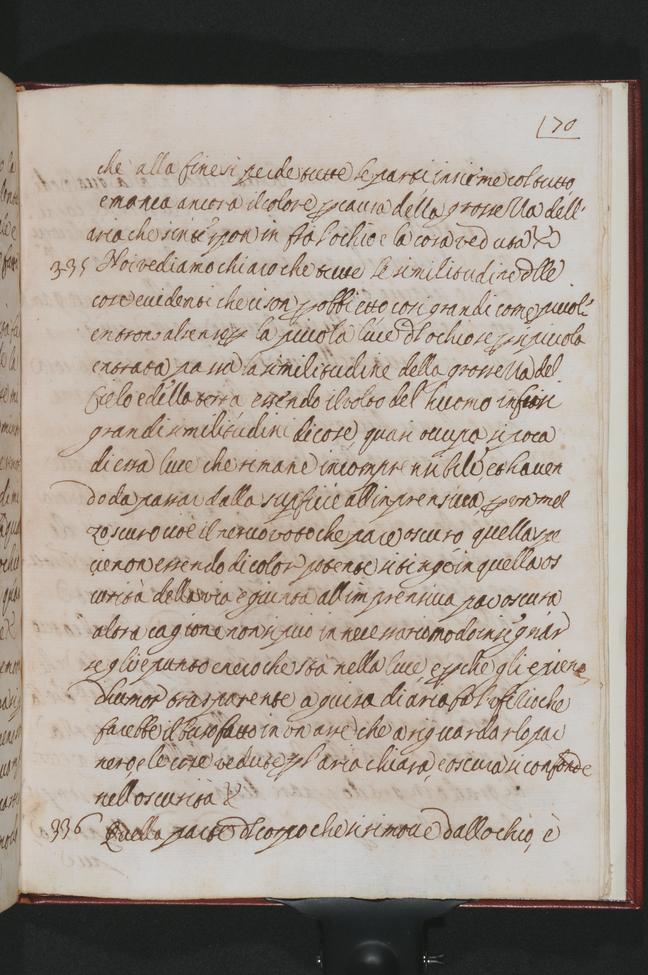 170
che alla fine si perde tutte le parti insieme col tutto
e manca ancora il colore per causa della grossezza dell'
aria che s'interpon in fra l'ochio e la cosa veduta
335 Noi vediamo chiaro che tutte le similitudine delle
cose evidenti che ci son per obbietto così grandi come picole
entrono al senso per la picola luce dl ochio se per sì picola
entrata passa la similitudine della grossezza del
cielo e della terra essendo il volto del huomo infra sì
grandi similitudini di cose, quasi ocupa sì poca
di essa luce che rimane incomprensibile, et haven
do da passar dalla supficie all'inprensiva, per un mel
zo scuro cioè il nervo voto che pare oscuro quella spe
cie non essendo di color potente si tinge in quella os
curità della via e giunta all'imprensiva par oscura
altra cagione non si può in necessario modo insegnar
se gli è punto nero che sta nella luce e perche gli è pieno
d'humor trasparente a guisa di aria fa l'ofitio che
farebbe il buso fatto in on asse che a riguardarlo par
nero, e le cose vedute per l'aria chiara, e scura si confonde
nell'oscurità
336 Quella parte dl corpo che si rimove dall ochio, è